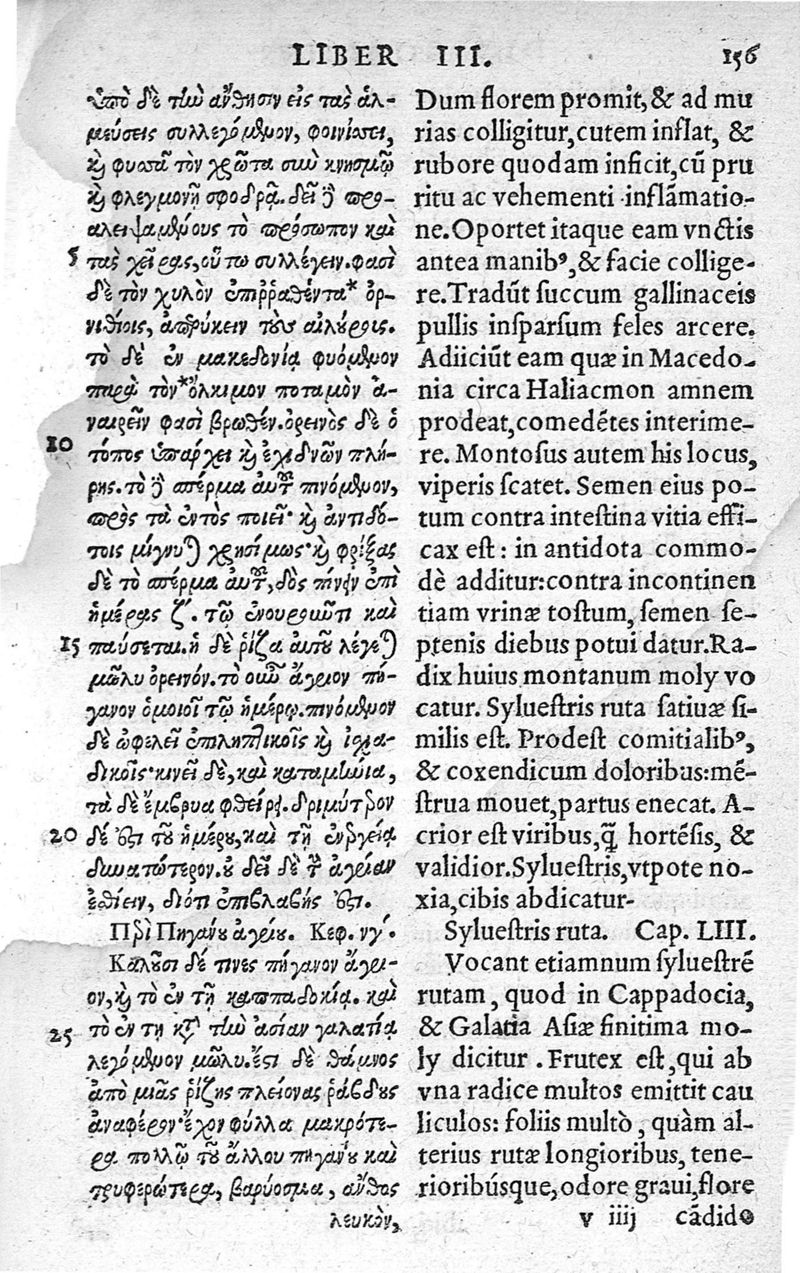 LIBER III. 156
ὑπὸ δὲ τὴν ἄνθησιν εἰς τὰς ἁλ-
μεύσεις συλλεγόμενον, φοινίσσει,
καὶ φυσᾷ τὸν χρῶτα σὺν κνησμῷ
καὶ φλεγμονῇ σφοδρᾷ. δεῖ δὲ προ-
αλειψαμένους τὸ πρόσωπον καὶ
5 τὰς χεῖρας, οὕτω συλλέγειν. φασὶ
δὲ τὸν χυλὸν ἐπιῤῥαθέντα* ὀρ-
νιθίοις, ἀπερύκειν τοὺς αἰλούρους.
τὸ δὲ ἐν μακεδονίᾳ φυόμενον
παρὰ τὸν *ὄλκιμον ποταμὸν ἀ-
ναιρεῖν φασὶ βρωθέν. ὀρεινὸς δὲ ὁ
10 τόπος ὑπάρχει καὶ ἐχιδνῶν πλή-
ρης. τὸ δὲ σπέρμα αὐτοῦ πινόμενον,
πρὸς τὰ ἐντὸς ποιεῖ· καὶ ἀντιδό-
τοις μίγνυται χρησίμως· καὶ φρίξας
δὲ τὸ σπέρμα αὐτοῦ, δὸς πίνειν ἐπὶ
ἡμέρας ζ´. τῷ ἐνουροῦντι καὶ
15 παύσεται. ἡ δὲ ῥίζα αὐτοῦ λέγεται
μῶλυ ὀρεινόν. τὸ οὖν ἄγριον πή-
γανον ὁμοιοῖ τῷ ἡμέρῳ. πινόμενον
δὲ ὠφελεῖ ἐπιληπτικοῖς καὶ ἰσχια-
δικοῖς· κινεῖ δὲ, καὶ καταμήνια,
τὰ δὲ ἔμβρυα φθείρει. δριμύτερον
20 δέ ἐστι τοῦ ἡμέρου, καὶ τῇ ἐνεργείᾳ
δυνατώτερον. οὐ δεῖ δὲ τὸ ἄγριον
ἐσθίειν, διότι ἐπιβλαβής ἐστι.
Περὶ Πηγάνου ἀγρίου. Κεφ. νγ´.
Καλοῦσι δέ τινες πήγανον ἄγρι-
ον, καὶ τὸ ἐν τῇ καππαδοκίᾳ. καὶ
25 τὸ ἐν τῇ κατὰ τὴν ἀσίαν γαλατίᾳ
λεγόμενον μῶλυ. ἔστι δὲ θάμνος
ἀπὸ μιᾶς ῥίζης πλείονας ῥάβδους
ἀναφέρων· ἔχον φύλλα μακρότε-
ρα πολλῷ τοῦ ἄλλου πηγάνου καὶ
τρυφερώτερα, βαρύοσμα, ἄνθος
λευκὸν,
Dum florem promit, & ad mu
rias colligitur, cutem inflat, &
rubore quodam inficit, cũ pru
ritu ac vehementi inflãmatio-
ne. Oportet itaque eam vnctis
antea manibꝰ, & facie collige-
re. Tradũt succum gallinaceis
pullis inspersum feles arcere.
Adiiciũt eam quæ in Macedo-
nia circa Haliacmon amnem
prodeat, comedẽtes interime-
re. Montosus autem his locus,
viperis scatet. Semen eius po-
tum contra intestina vitia effi-
cax est: in antidota commo-
dè additur: contra incontinen
tiam vrinæ tostum, semen se-
ptenis diebus potui datur. Ra-
dix huius montanum moly vo
catur. Syluestris ruta satiuæ si-
milis est. Prodest comitialibꝰ,
& coxendicum doloribus: mẽ-
strua mouet, partus enecat. A-
crior est viribus, q̃ hortẽsis, &
validior. Syluestris, vtpote no-
xia, cibis abdicatur-
Syluestris ruta. Cap. LIII.
Vocant etiamnum syluestrẽ
rutam, quod in Cappadocia,
& Galatia Asiæ finitima mo-
ly dicitur. Frutex est, qui ab
vna radice multos emittit cau
liculos: foliis multò, quàm al-
terius rutæ longioribus, tene-
rioribúsque, odore graui, flore
v iiij cãdido